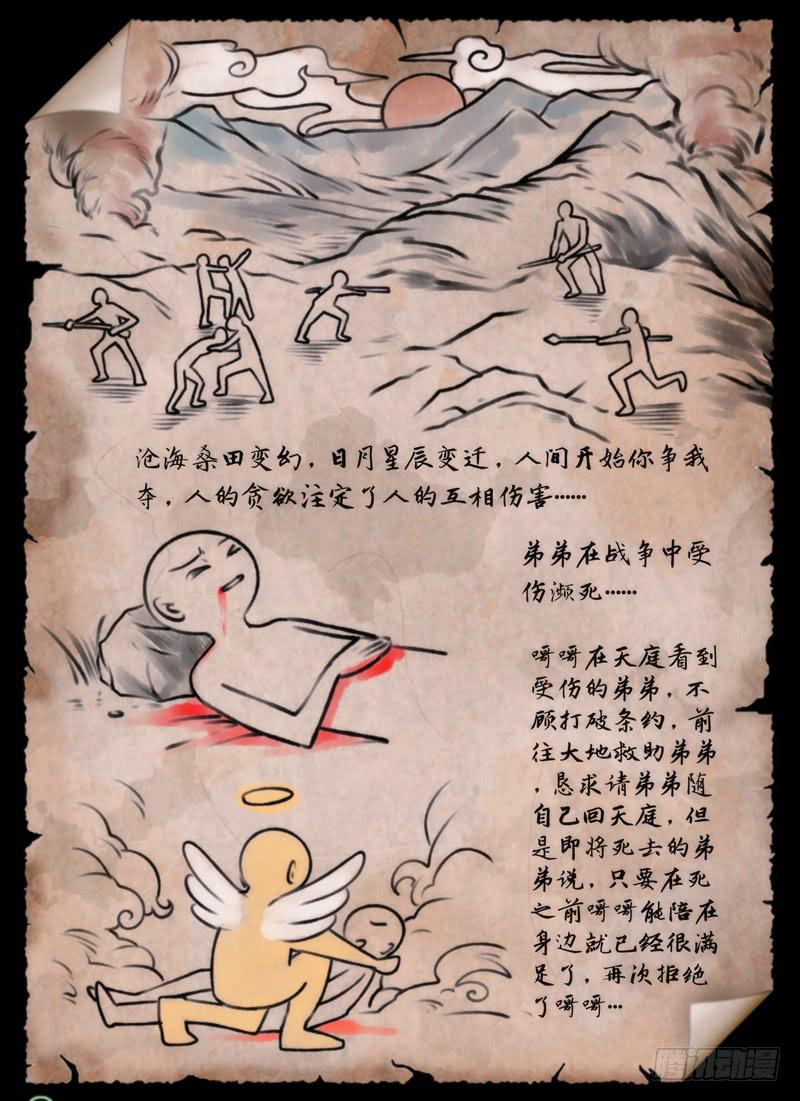 沧海桑田变幻，日月星辰变迁，人间开始你争我
夺，人的贪欲注定了人的互相伤害……
弟弟在战争中受
伤濒死……
哥哥在天庭看到
受伤的弟弟，不
顾打破条约，前
往大地救助弟弟
，恳求请弟弟随
自己回天庭，但
是即将死去的弟
弟说，只要在死
之前哥哥能陪在
身边就已经很满
足了，再次拒绝
了哥哥…
腾讯动漫